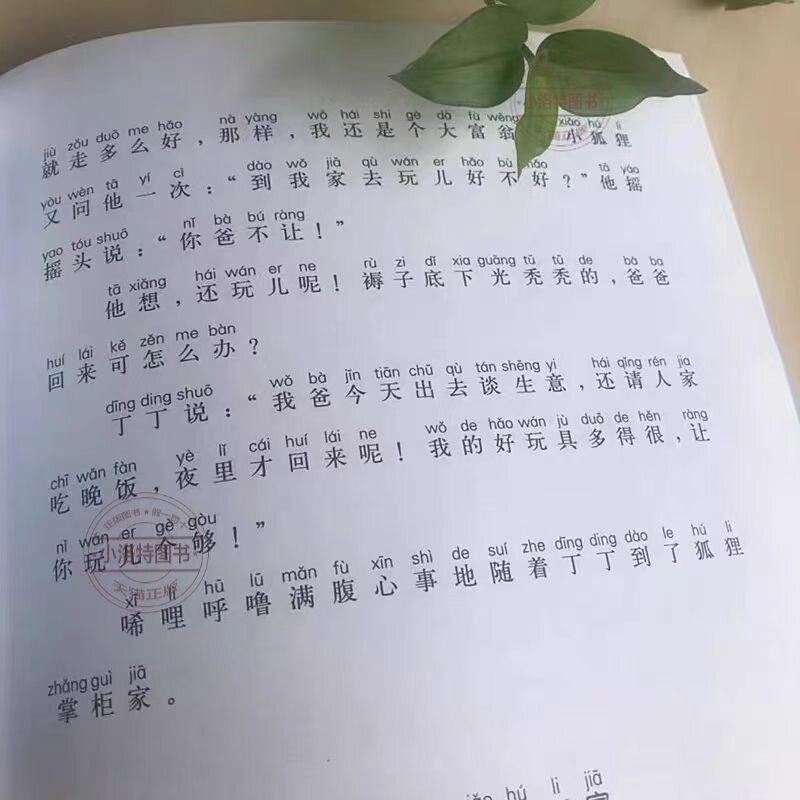 jiù zǒu duō me hǎo nà yàng wǒ hái shi gè dà fù wēng xiǎo hú li
就走多么好，那样，我还是个大富翁。小狐狸
yòu wèn tā yí cì dào wǒ jiā qù wán er hǎo bù hǎo
又问他一次：“到我家去玩儿好不好？”他摇
yao tóu shuō nǐ bà bú ràng
摇头说：“你爸不让！”
tā xiǎng hái wán er ne rù zi dǐ xia guāng tū tū de bà ba
他想，还玩儿呢！褥子底下光秃秃的，爸爸
huí lái kě zěn me bàn
回来可怎么办？
dīng ding shuō wǒ bà jīn tiān chū qù tán shēng yi hái qǐng rén jia
丁丁说：“我爸今天出去谈生意，还请人家
chī wǎn fàn yè lǐ cái huí lái ne wǒ de hǎo wán jù duō de hěn ràng
吃晚饭，夜里才回来呢！我的好玩具多得很，让
nǐ wán er gè gòu
你玩儿个够！”
xī lī hū lū mǎn fù xīn shì de suí zhe dīng ding dào le hú li
唏哩呼噜满腹心事地随着丁丁到了狐狸
zhǎng guì jiā
掌柜家。
hú li jiā
小洛特图书
正版图书★假一罚
小洛特图书
天猫正版